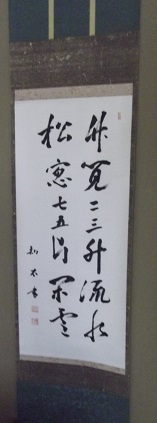 竹筧二三升流水
松窓七五片閑雲